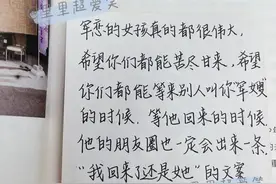 里里超爱笑
军恋的女孩真的都很伟大,
希望你们都能苦尽甘来,希望
你们都能等来别人叫你军嫂
的时候.等他回来的时候
他的朋友圈也一定会出来一条,
“我回来了还是她”的文案